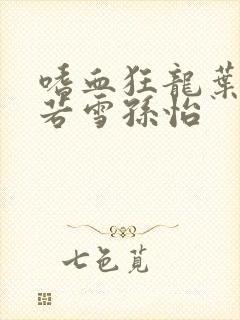 嗜血狂龍葉
若雪孫怡
七色莧